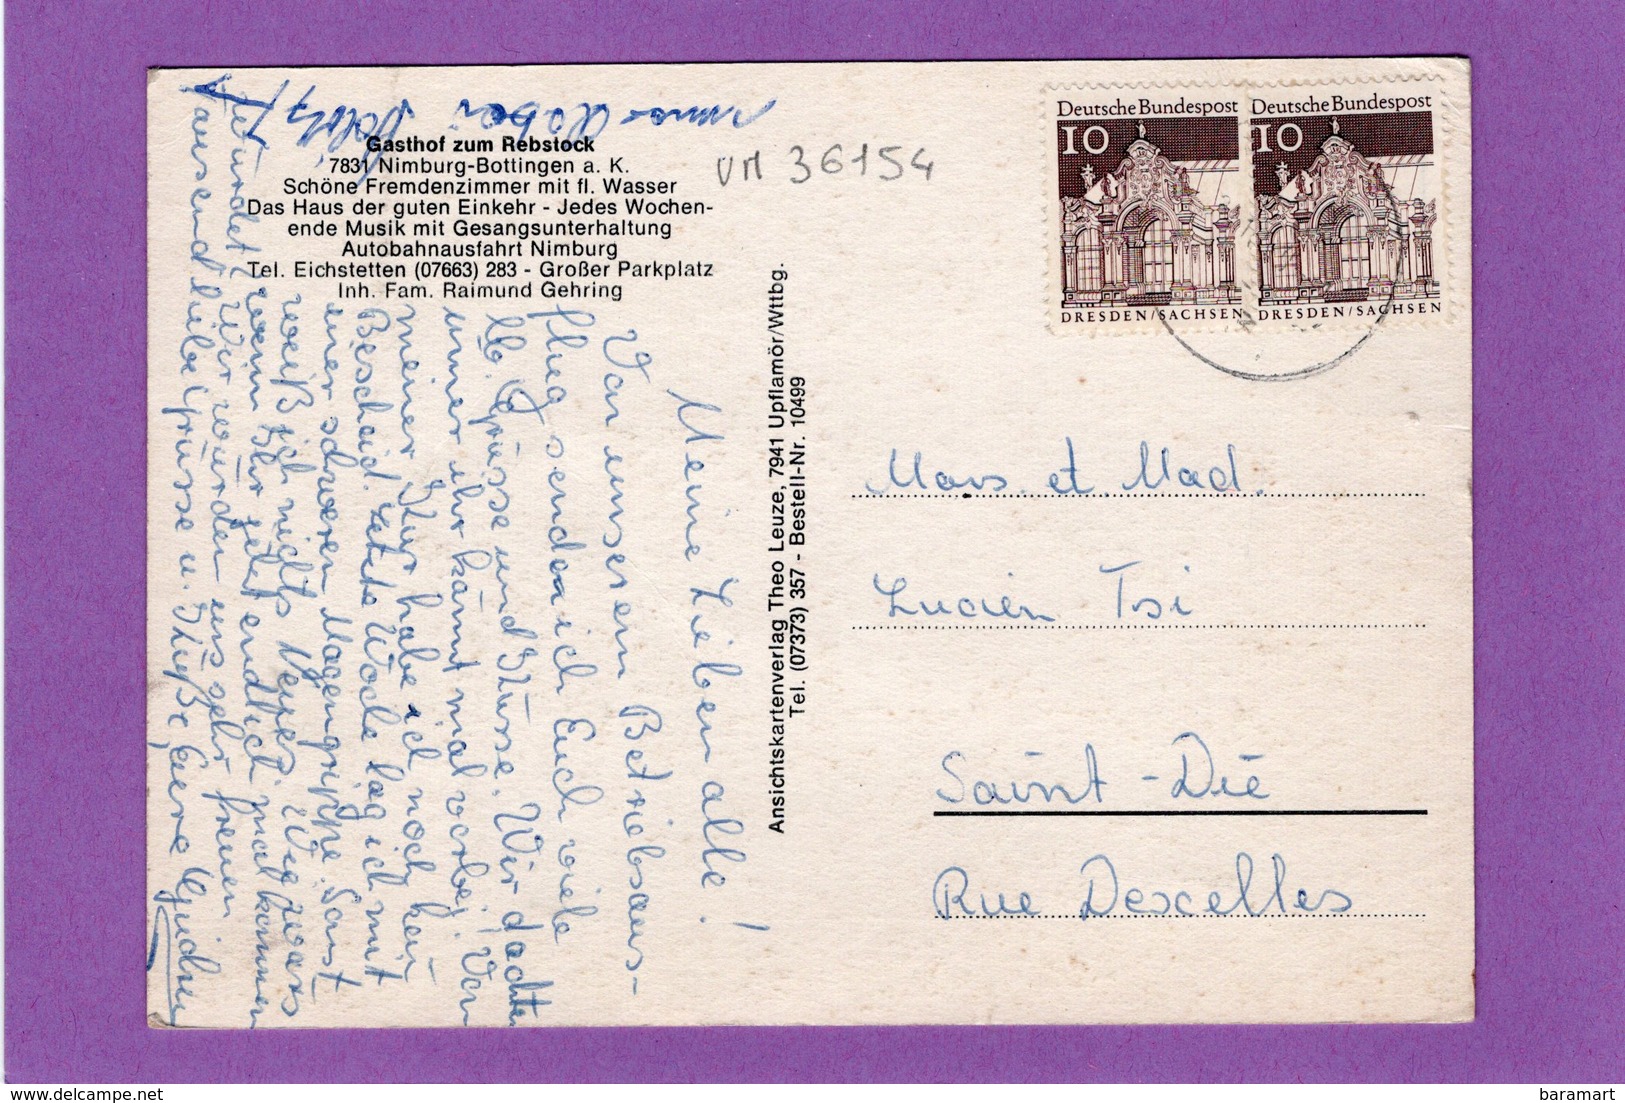 Gasthof zum Rebstock
7831 Nimburg-Bottingen a. K.
Schöne Fremdenzimmer mit fl. Wasser
Das Haus der guten Einkehr - Jedes Wochen-
ende Musik mit Gesangsunterhaltung
Autobahnausfahrt Nimburg
Tel. Eichstetten (07663) 283 - Großer Parkplatz
Inh. Fam. Raimund Gehring
Meine Lieben alle!
Von unserem Betriebsaus-
flug senden ich Euch viele
lb. Grüsse und Küsse. Wir dachten
immer ihr kömmt mal vorbei. Von
meiner Kur habe ich noch kein
Bescheid. Letzte Woche lag ich mit
einer schweren Magengrippe. Sonst
weiß ich nichts Neues. Wie wärs
wenn Ihr jetzt endlich mal kommen
würdet? Wir würden uns sehr freuen
Tausend liebe Grüsse u. Küße, Eure
Ansichtskartenverlag Theo Leuze, 7941 Upflamör/Wttbg.
Tel. (07373) 357 - Bestell-Nr. 10499
VM 36154
Deutsche Bundespost
10
DRESDEN/SACHSEN
Deutsche Bundespost
10
DRESDEN/SACHSEN
Mons. et Mad.
Lucien Tsi
Saint-Dié
Rue Descelles
delcampe.net
baramart